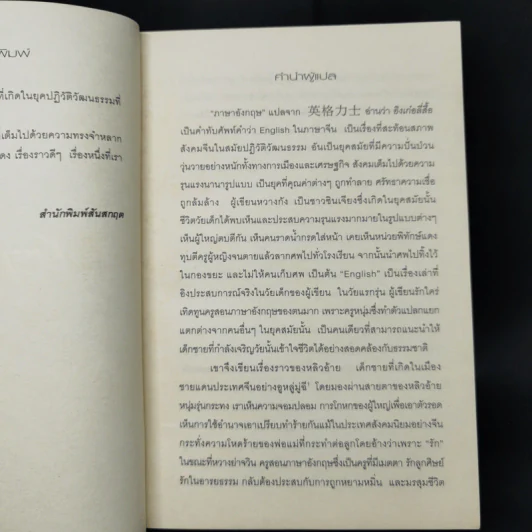 พิมพ์
ที่เกิดในยุคปฏิวัติวัฒนธรรมที่
เต็มไปด้วยความทรงจำหลาก
เรื่องราวดีๆ เรื่องหนึ่งที่เรา
สำนักพิมพ์สันสกฤต
คำนำผู้แปล
"ภาษาอังกฤษ" แปลจาก 英格力士 อ่านว่า อิงเก๋อลี่สื้อ
เป็นคำทับศัพท์คำว่า English ในภาษาจีน เป็นเรื่องที่สะท้อนสภาพ
สังคมจีนในสมัยปฏิวัติวัฒนธรรม อันเป็นยุคสมัยที่มีความปั่นป่วน
วุ่นวายอย่างหนักทั้งทางการเมืองและเศรษฐกิจ สังคมเต็มไปด้วยความ
รุนแรงนานารูปแบบ เป็นยุคที่คุณค่าต่างๆ ถูกทำลาย ศรัทธาความเชื่อ
ถูกล้มล้าง ผู้เขียนหวางกัง เป็นชาวซินเจียงซึ่งเกิดในยุคสมัยนั้น
ชีวิตวัยเด็กได้พบเห็นและประสบความรุนแรงมากมายในรูปแบบต่างๆ
เห็นผู้ใหญ่ตบตีกัน เห็นคนราดน้ำกรดใส่หน้า เคยเห็นหน่วยพิทักษ์แดง
ทุบตีครูผู้หญิงจนตายแล้วลากศพไปทั่วโรงเรียน จากนั้นนำศพไปทิ้งไว้
ในกองขยะ และไม่ให้คนเก็บศพ เป็นต้น "English" เป็นเรื่องเล่าที่
อิงประสบการณ์จริงในวัยเด็กของผู้เขียน ในวัยแรกรุ่น ผู้เขียนรักใคร่
เทิดทูนครูสอนภาษาอังกฤษของตนมาก เพราะครูหนุ่มซึ่งทำตัวแปลกแยก
แตกต่างจากคนอื่นๆ ในยุคสมัยนั้น เป็นคนเดียวที่สามารถแนะนำให้
เด็กชายที่กำลังเจริญวัยนั้นเข้าใจชีวิตได้อย่างสอดคล้องกับธรรมชาติ
เขาจึงเขียนเรื่องราวของหลิวอ้าย เด็กชายที่เกิดในเมือง
ชายแดนประเทศจีนอย่างอูหลู่มู่ฉี¹ โดยมองผ่านสายตาของหลิวอ้าย
หนุ่มรุ่นกระทง เราเห็นความจอมปลอม การโกหกของผู้ใหญ่เพื่อเอาตัวรอด
เห็นการใช้อำนาจเอาเปรียบทำร้ายกันแม้ในประเทศสังคมนิยมอย่างจีน
กระทั่งความโหดร้ายของพ่อแม่ที่กระทำต่อลูกโดยอ้างว่าเพราะ "รัก"
ในขณะที่หวางย่าจวิน ครูสอนภาษาอังกฤษซึ่งเป็นครูที่มีเมตตา รักลูกศิษย์
รักในอารยธรรม กลับต้องประสบกับการถูกหยามหมิ่น และมรสุมชีวิต